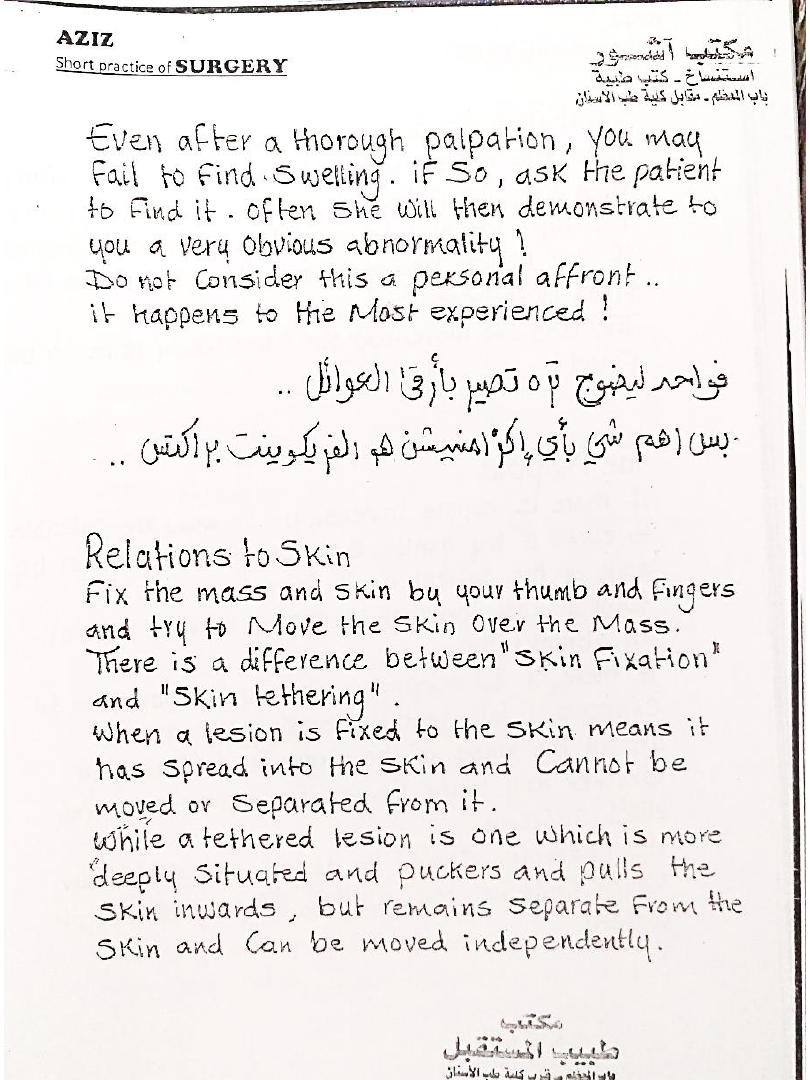 AZIZ
Short practice of SURGERY
مكتب آشور
استنساخ - كتب طبية
باب المعظم - مقابل كلية طب الاسنان
Even after a thorough palpation, you may
fail to find swelling. if so, ask the patient
to find it. often she will then demonstrate to
you a very obvious abnormality!
Do not consider this a personal affront..
it happens to the Most experienced!
فواحد ليضوج تره تصير بأرقى العوائل ..
بس اهم شي بأي إكزامنيشن هو الفريكوينت براكتس ..
Relations to Skin
Fix the mass and skin by your thumb and fingers
and try to Move the skin over the Mass.
There is a difference between "Skin Fixation"
and "Skin tethering".
When a lesion is fixed to the skin means it
has spread into the skin and Cannot be
moved or separated from it.
While a tethered lesion is one which is more
deeply situated and puckers and pulls the
skin inwards, but remains separate from the
skin and can be moved independently.
مكتب
طبيب المستقبل
باب المعظم - قرب كلية طب الأسنان